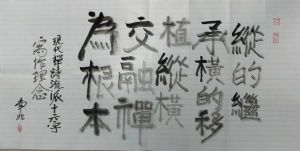 縱的繼
承橫的移
植縱橫
交融禪
為根本
現代禪詩流派十六字
寫作理念